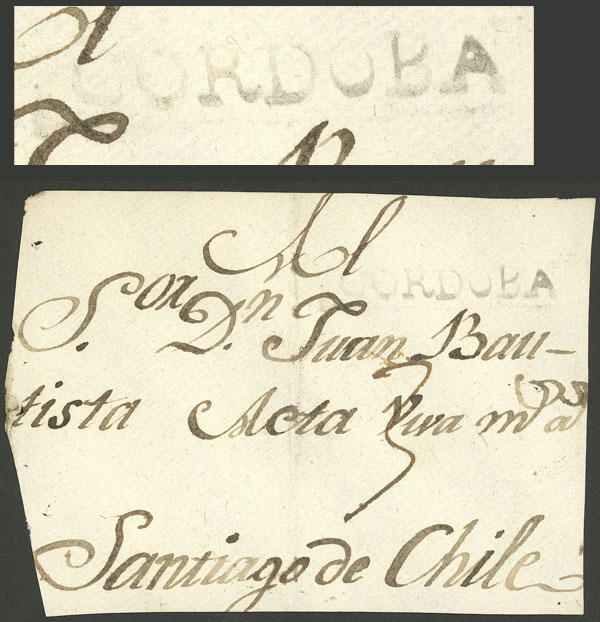 CORDOBA
Al
CORDOBA
S.or D.n Juan Bau-
tista Aeta Viva m.s a.s
Santiago de Chile